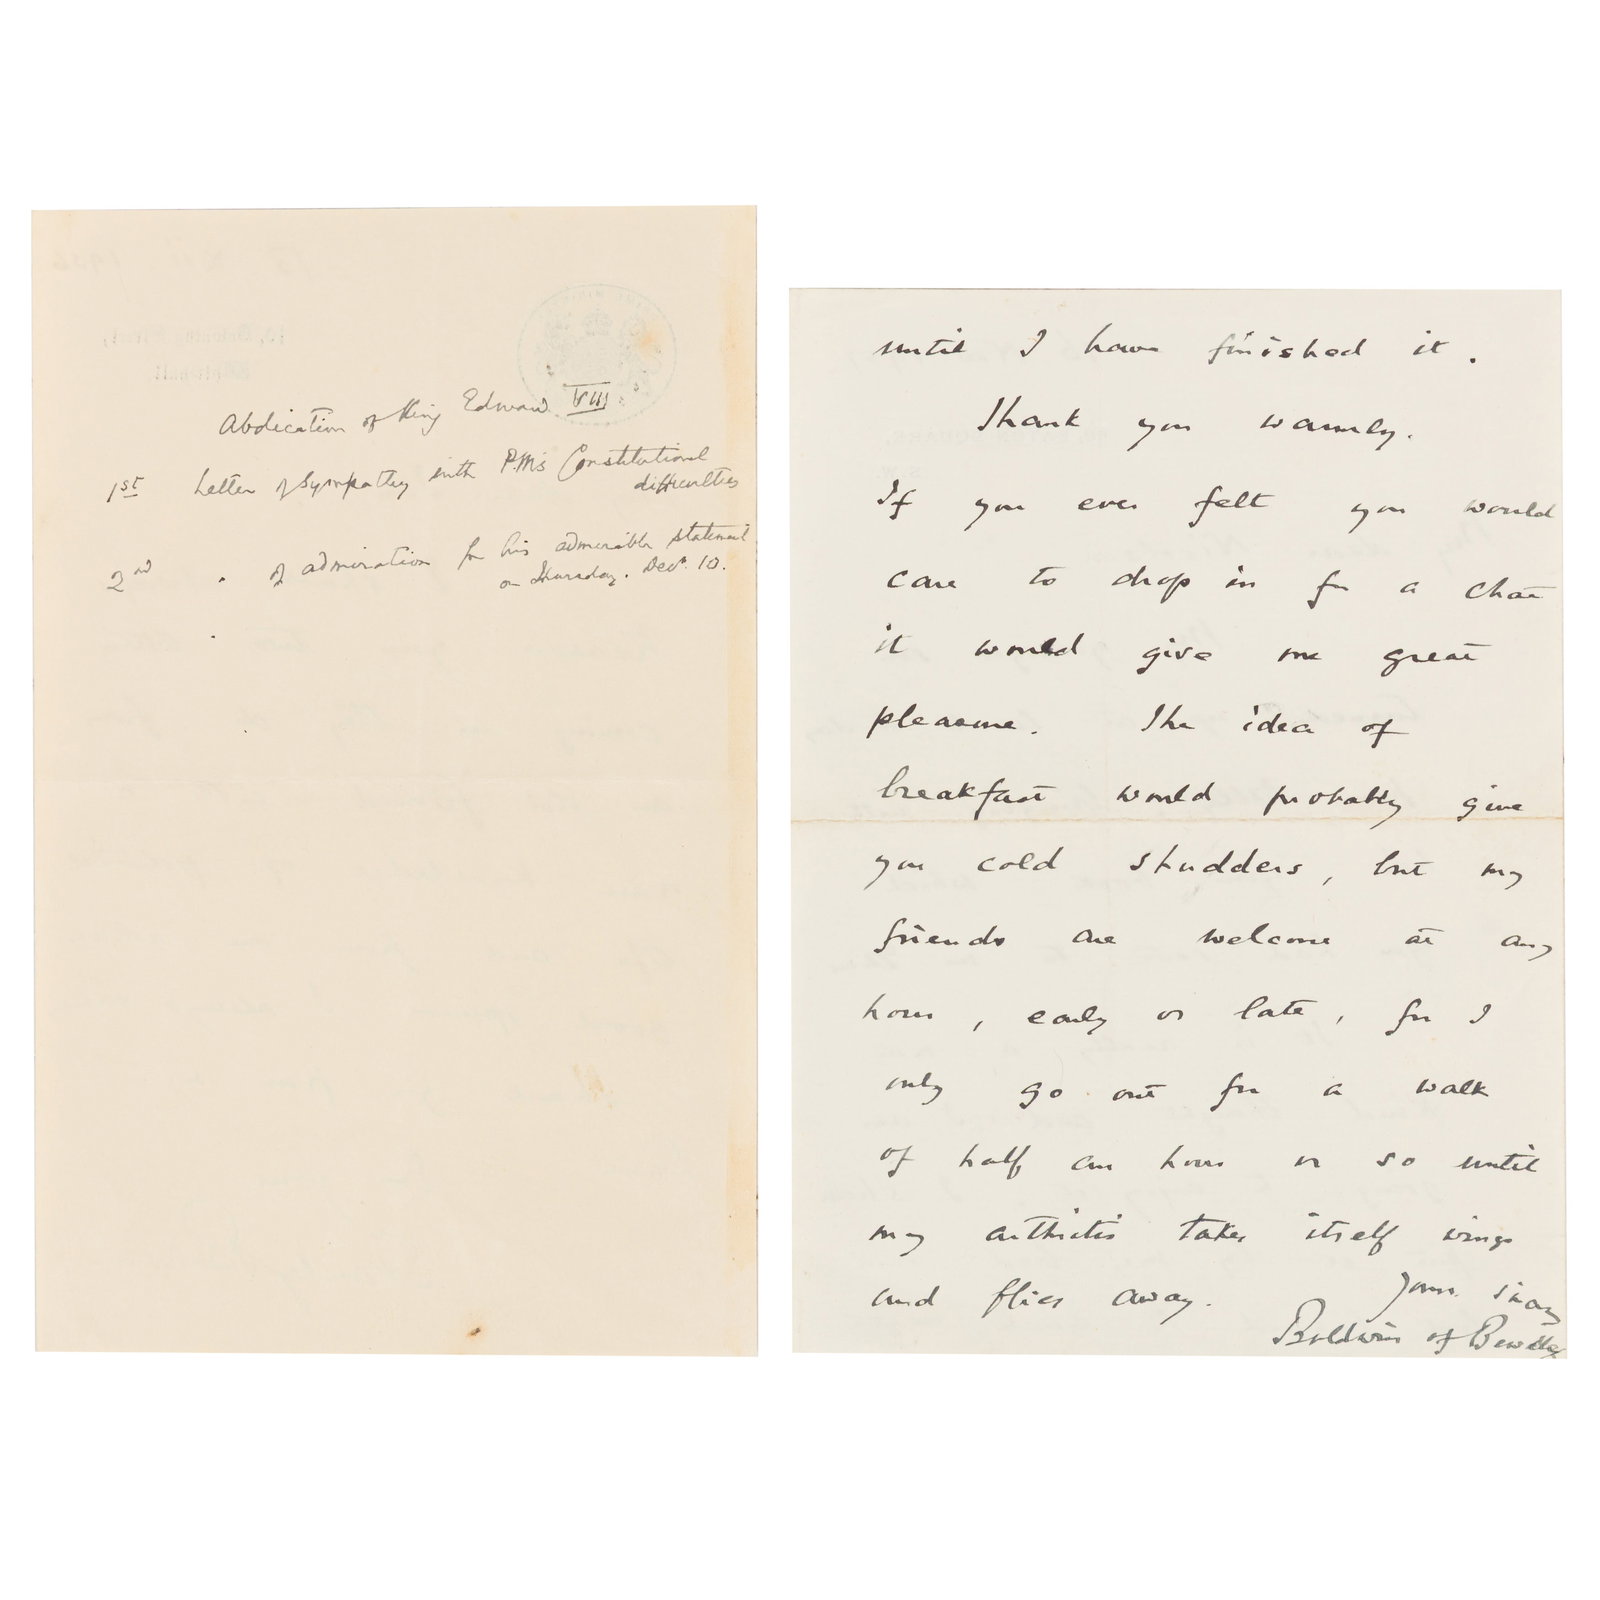 Abdication of King Edward VIII
1st Letter of Sympathy with P.M's Constitutional
difficulties
2nd " of admiration for his admirable statement
on Thursday. Decr. 10.
until I have finished it.
Thank you warmly.
If you ever felt you would
care to drop in for a chat
it would give me great
pleasure. The idea of
breakfast would probably give
you cold shudders, but my
friends are welcome at any
hour, early or late, for I
only go out for a walk
of half an hour or so until
my arthritis takes itself wings
and flies away.
Yours
Baldwin of Bewdley